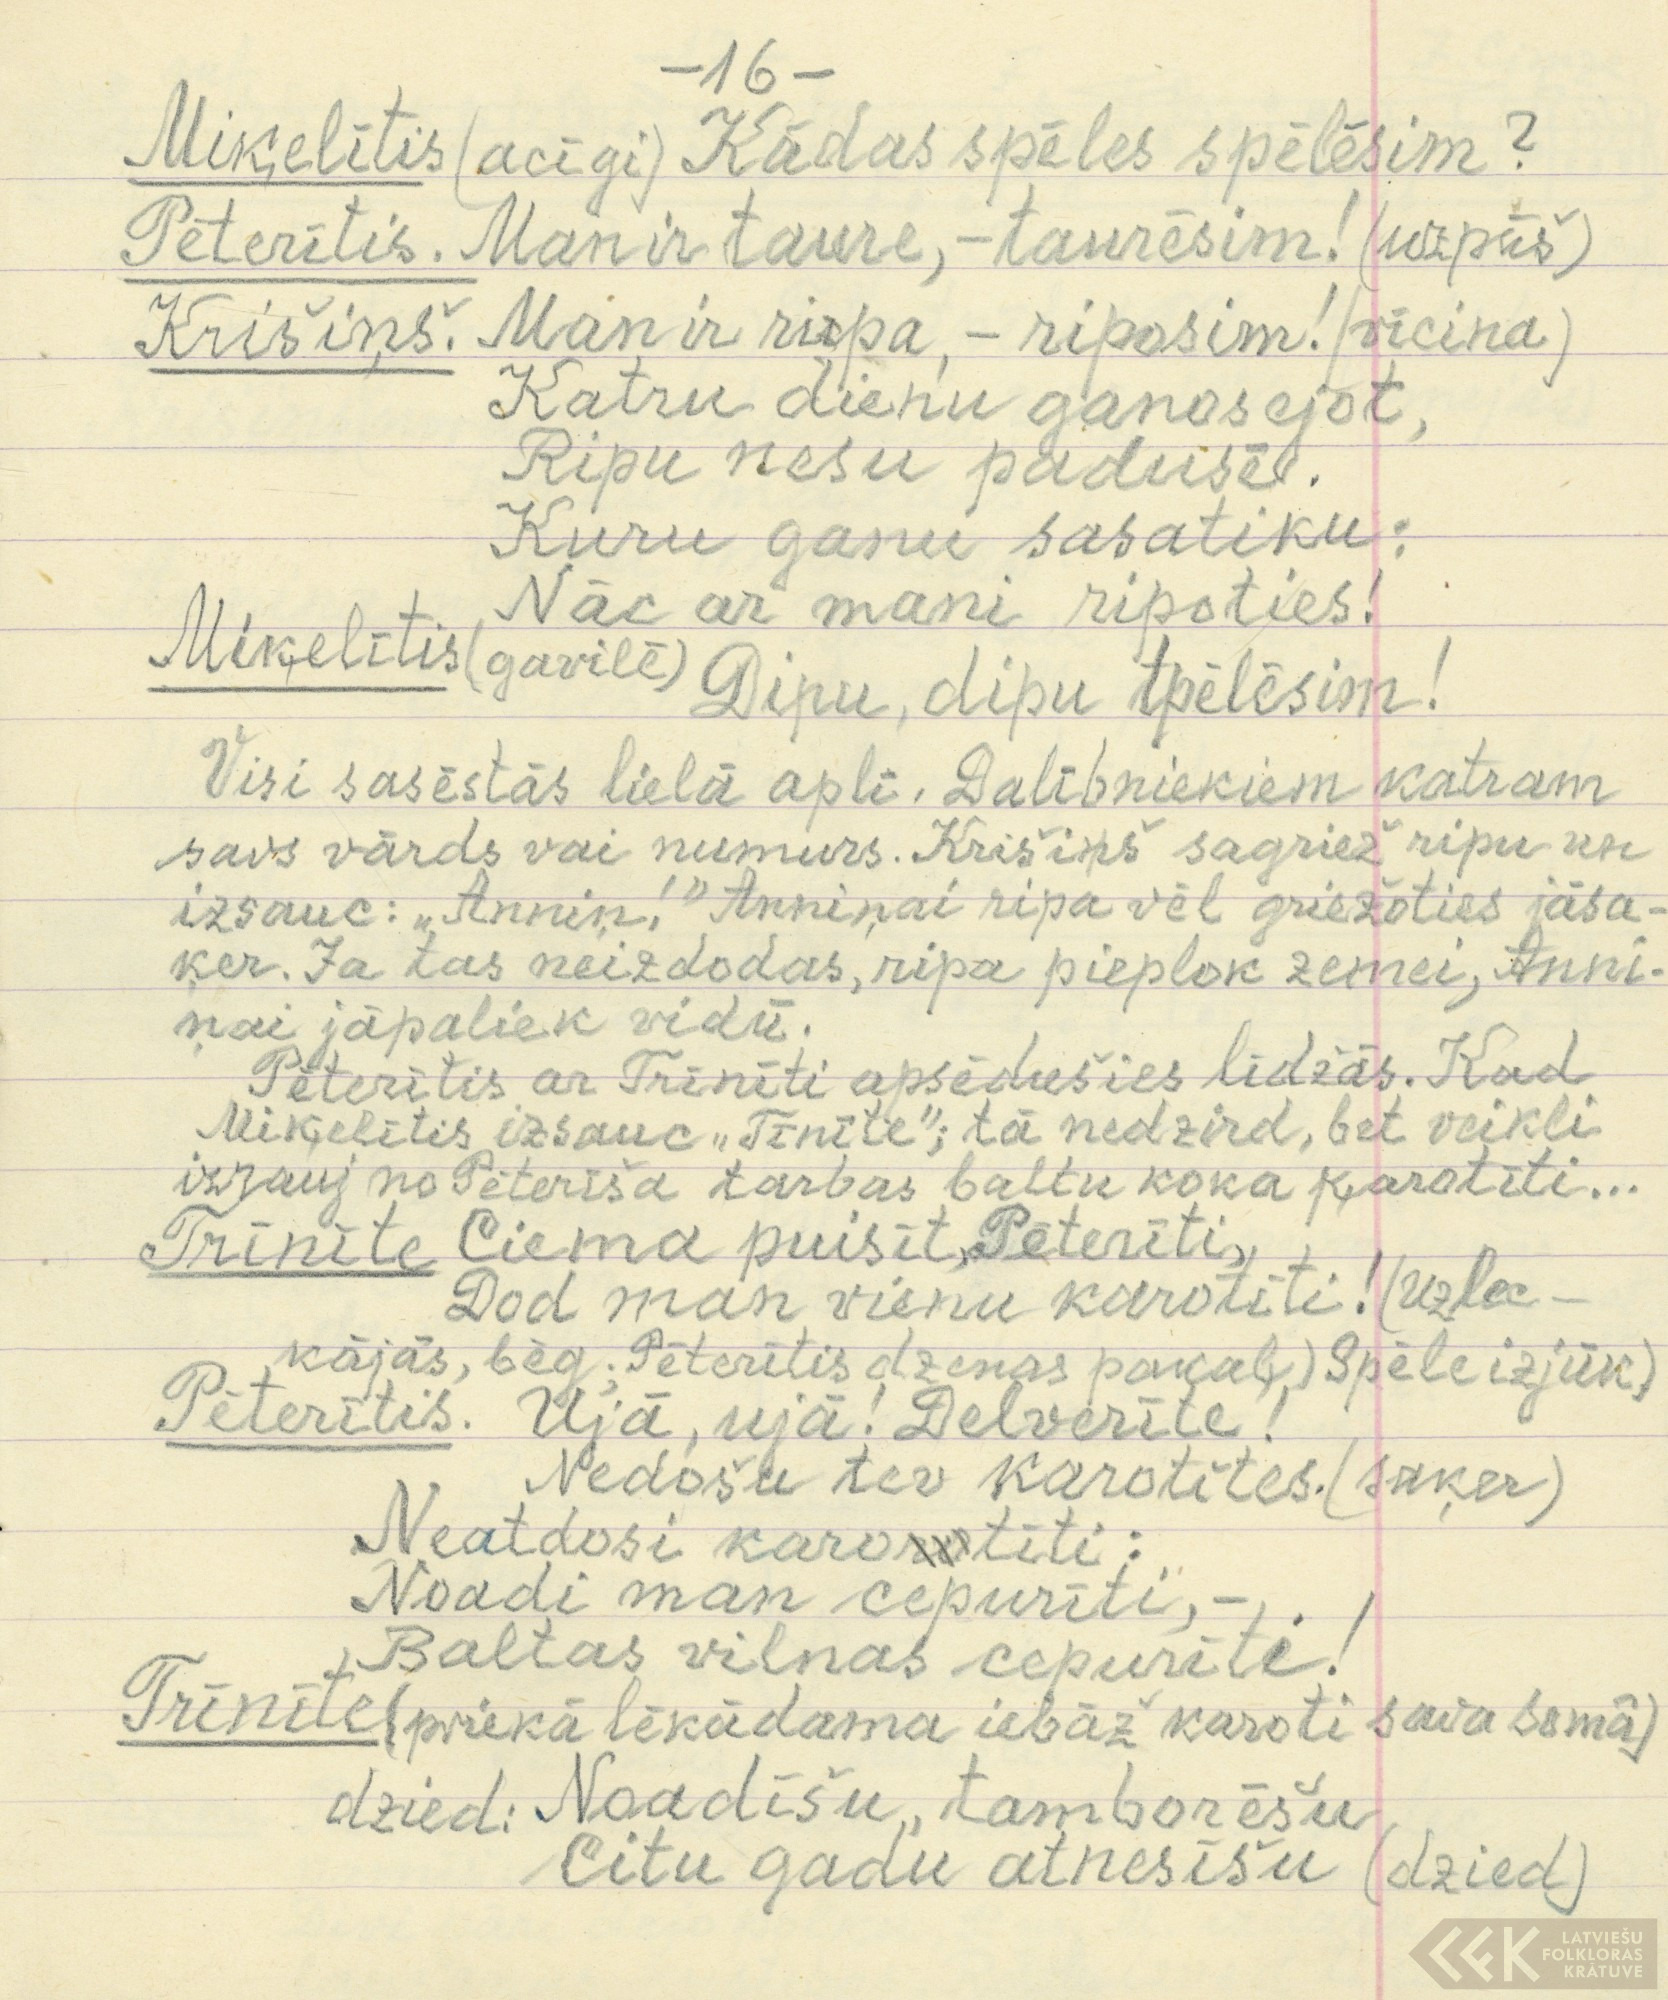 -16-
Miķelītis (acīgi) Kādas spēles spēlēsim?
Pēterītis. Man ir taure, - taurēsim! (uzpūš)
Krišiņš. Man ir ripa, - riposim! (vicina)
Katru dienu ganos ejot,
Ripu nesu padusē.
Kuru ganu sasatiku:
Nāc ar mani ripoties!
Miķelītis (gavilē) Dipu, dipu tpēlēsim!
Visi sasēstās lielā aplī. Dalībniekiem katram
savs vārds vai numurs. Krišiņš sagriež ripu un
izsauc: „Anniņ!" Anniņai ripa vēl griežoties jāsa-
ķer. Ja tas neizdodas, ripa pieplok zemei, Anni-
ņai jāpaliek vidū.
Pēterītis ar Trīnīti apsēdušies līdzās. Kad
Miķelītis izsauc „Tīnīte"; tā nedzird, bet veikli
izrauj no Pēterīša tarbas baltu koka karotīti...
Trīnīte Ciema puisīt, Pēterīti,
Dod man vienu karotīti! (Uzlec
kājās, bēg; Pēterītis dzenas pakaļ,) Spēle izjūk)
Pēterītis. Ujā, ujā! Delverīte!
Nedošu tev karotītes. (saķer)
Neatdosi karotīti:
Noadi man cepurīti, -
Baltas vilnas cepurīti!
Trīnīte (priekā lēkādama iebāž karoti sava somā)
dzied: Noadīšu, tamborēšu
Citu gadu atnesīšu (dzied)
LATVIEŠU
FOLKLORAS
KRĀTUVE